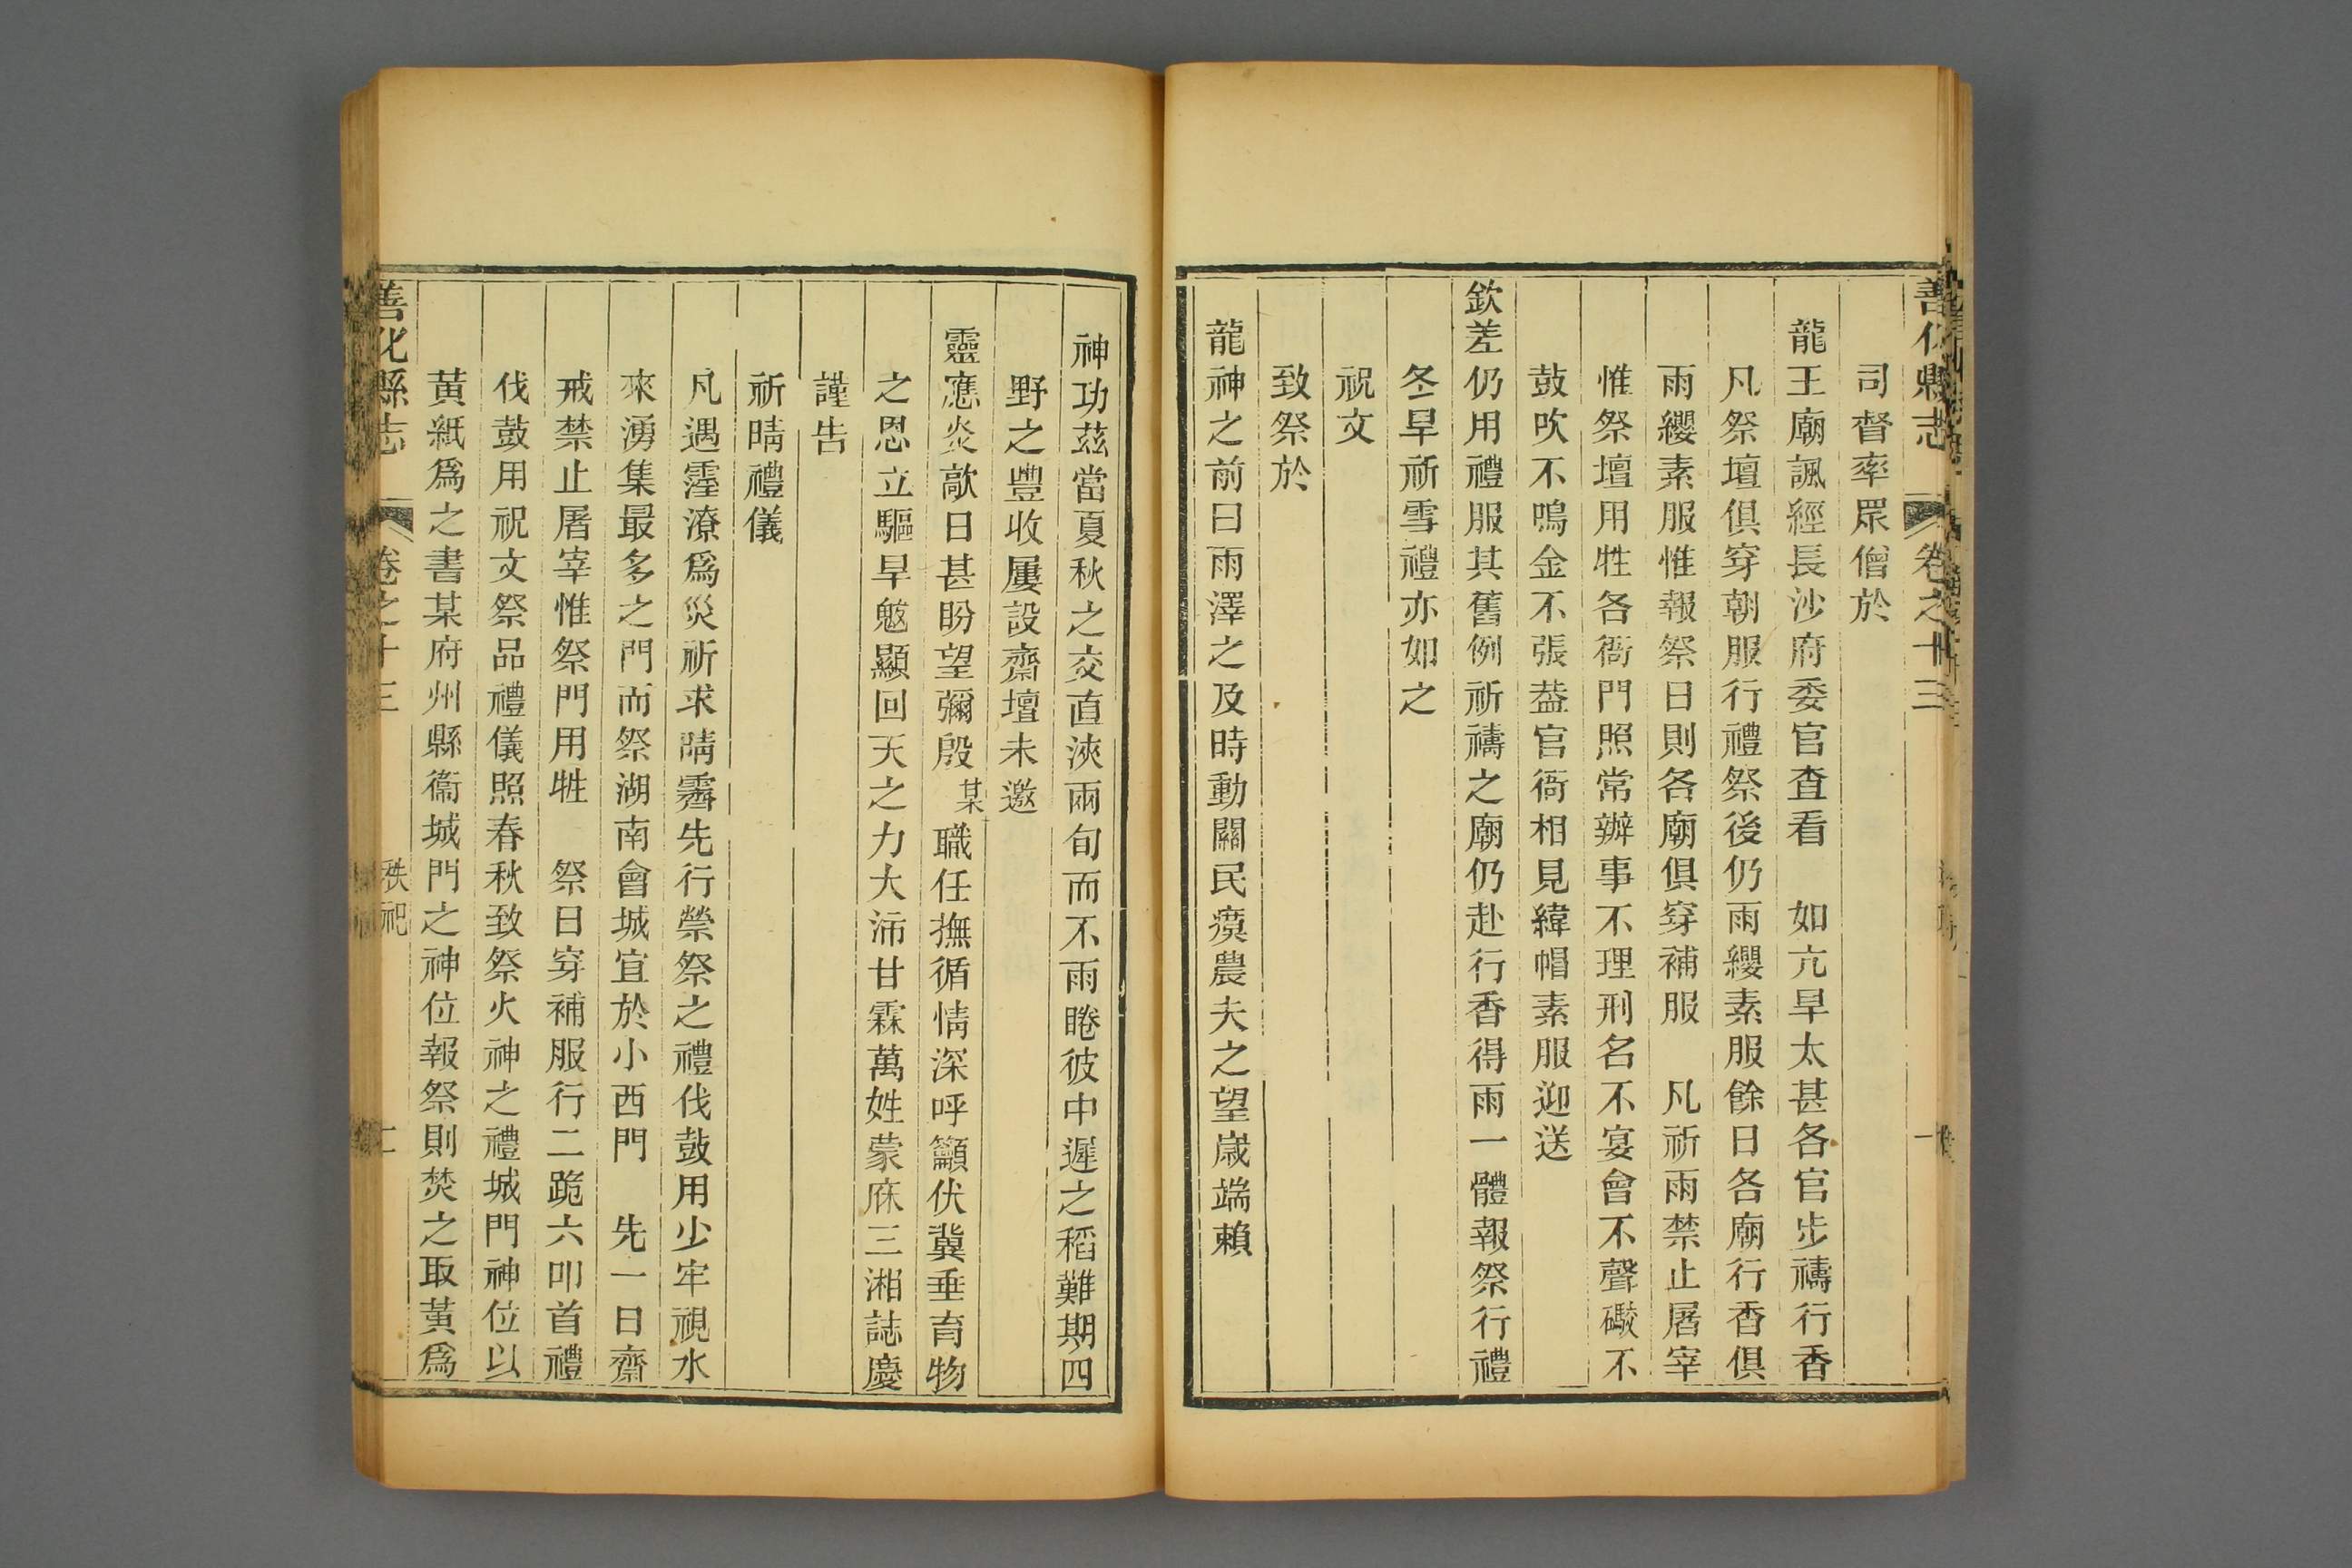 善化縣志 卷之十三
司督率眾僧於
龍王廟諷經長沙府委官查看 如亢旱太甚各官步禱行香
凡祭壇俱穿朝服行禮祭後仍雨纓素服餘日各廟行香俱
雨纓素服惟報祭日則各廟俱穿補服 凡祈雨禁止屠宰
惟祭壇用牲各衙門照常辦事不理刑名不宴會不聲礮不
鼓吹不鳴金不張葢官衙相見緯帽素服迎送
欽差仍用禮服其舊例祈禱之廟仍赴行香得雨一體報祭行禮
冬旱祈雪禮亦如之
祝文
致祭於
龍神之前曰雨澤之及時動關民瘼農夫之望歲端賴
神功茲當夏秋之交直浹兩旬而不雨睠彼中遲之稻難期四
野之豐收屢設齋壇未邀
靈應炎歊日甚盼望彌殷某職任撫循情深呼籲伏冀垂育物
之恩立驅旱魃顯回天之力大沛甘霖萬姓蒙庥三湘誌慶
謹告
祈晴禮儀
凡遇霪潦為災祈求晴霽先行禜祭之禮伐鼓用少牢視水
來湧集最多之門而祭湖南會城宜於小西門 先一日齋
戒禁止屠宰惟祭門用牲 祭日穿補服行二跪六叩首禮
伐鼓用祝文祭品禮儀照春秋致祭火神之禮城門神位以
黃紙爲之書某府州縣衞城門之神位報祭則焚之取黃爲
善化縣志 卷之十三 秩祀